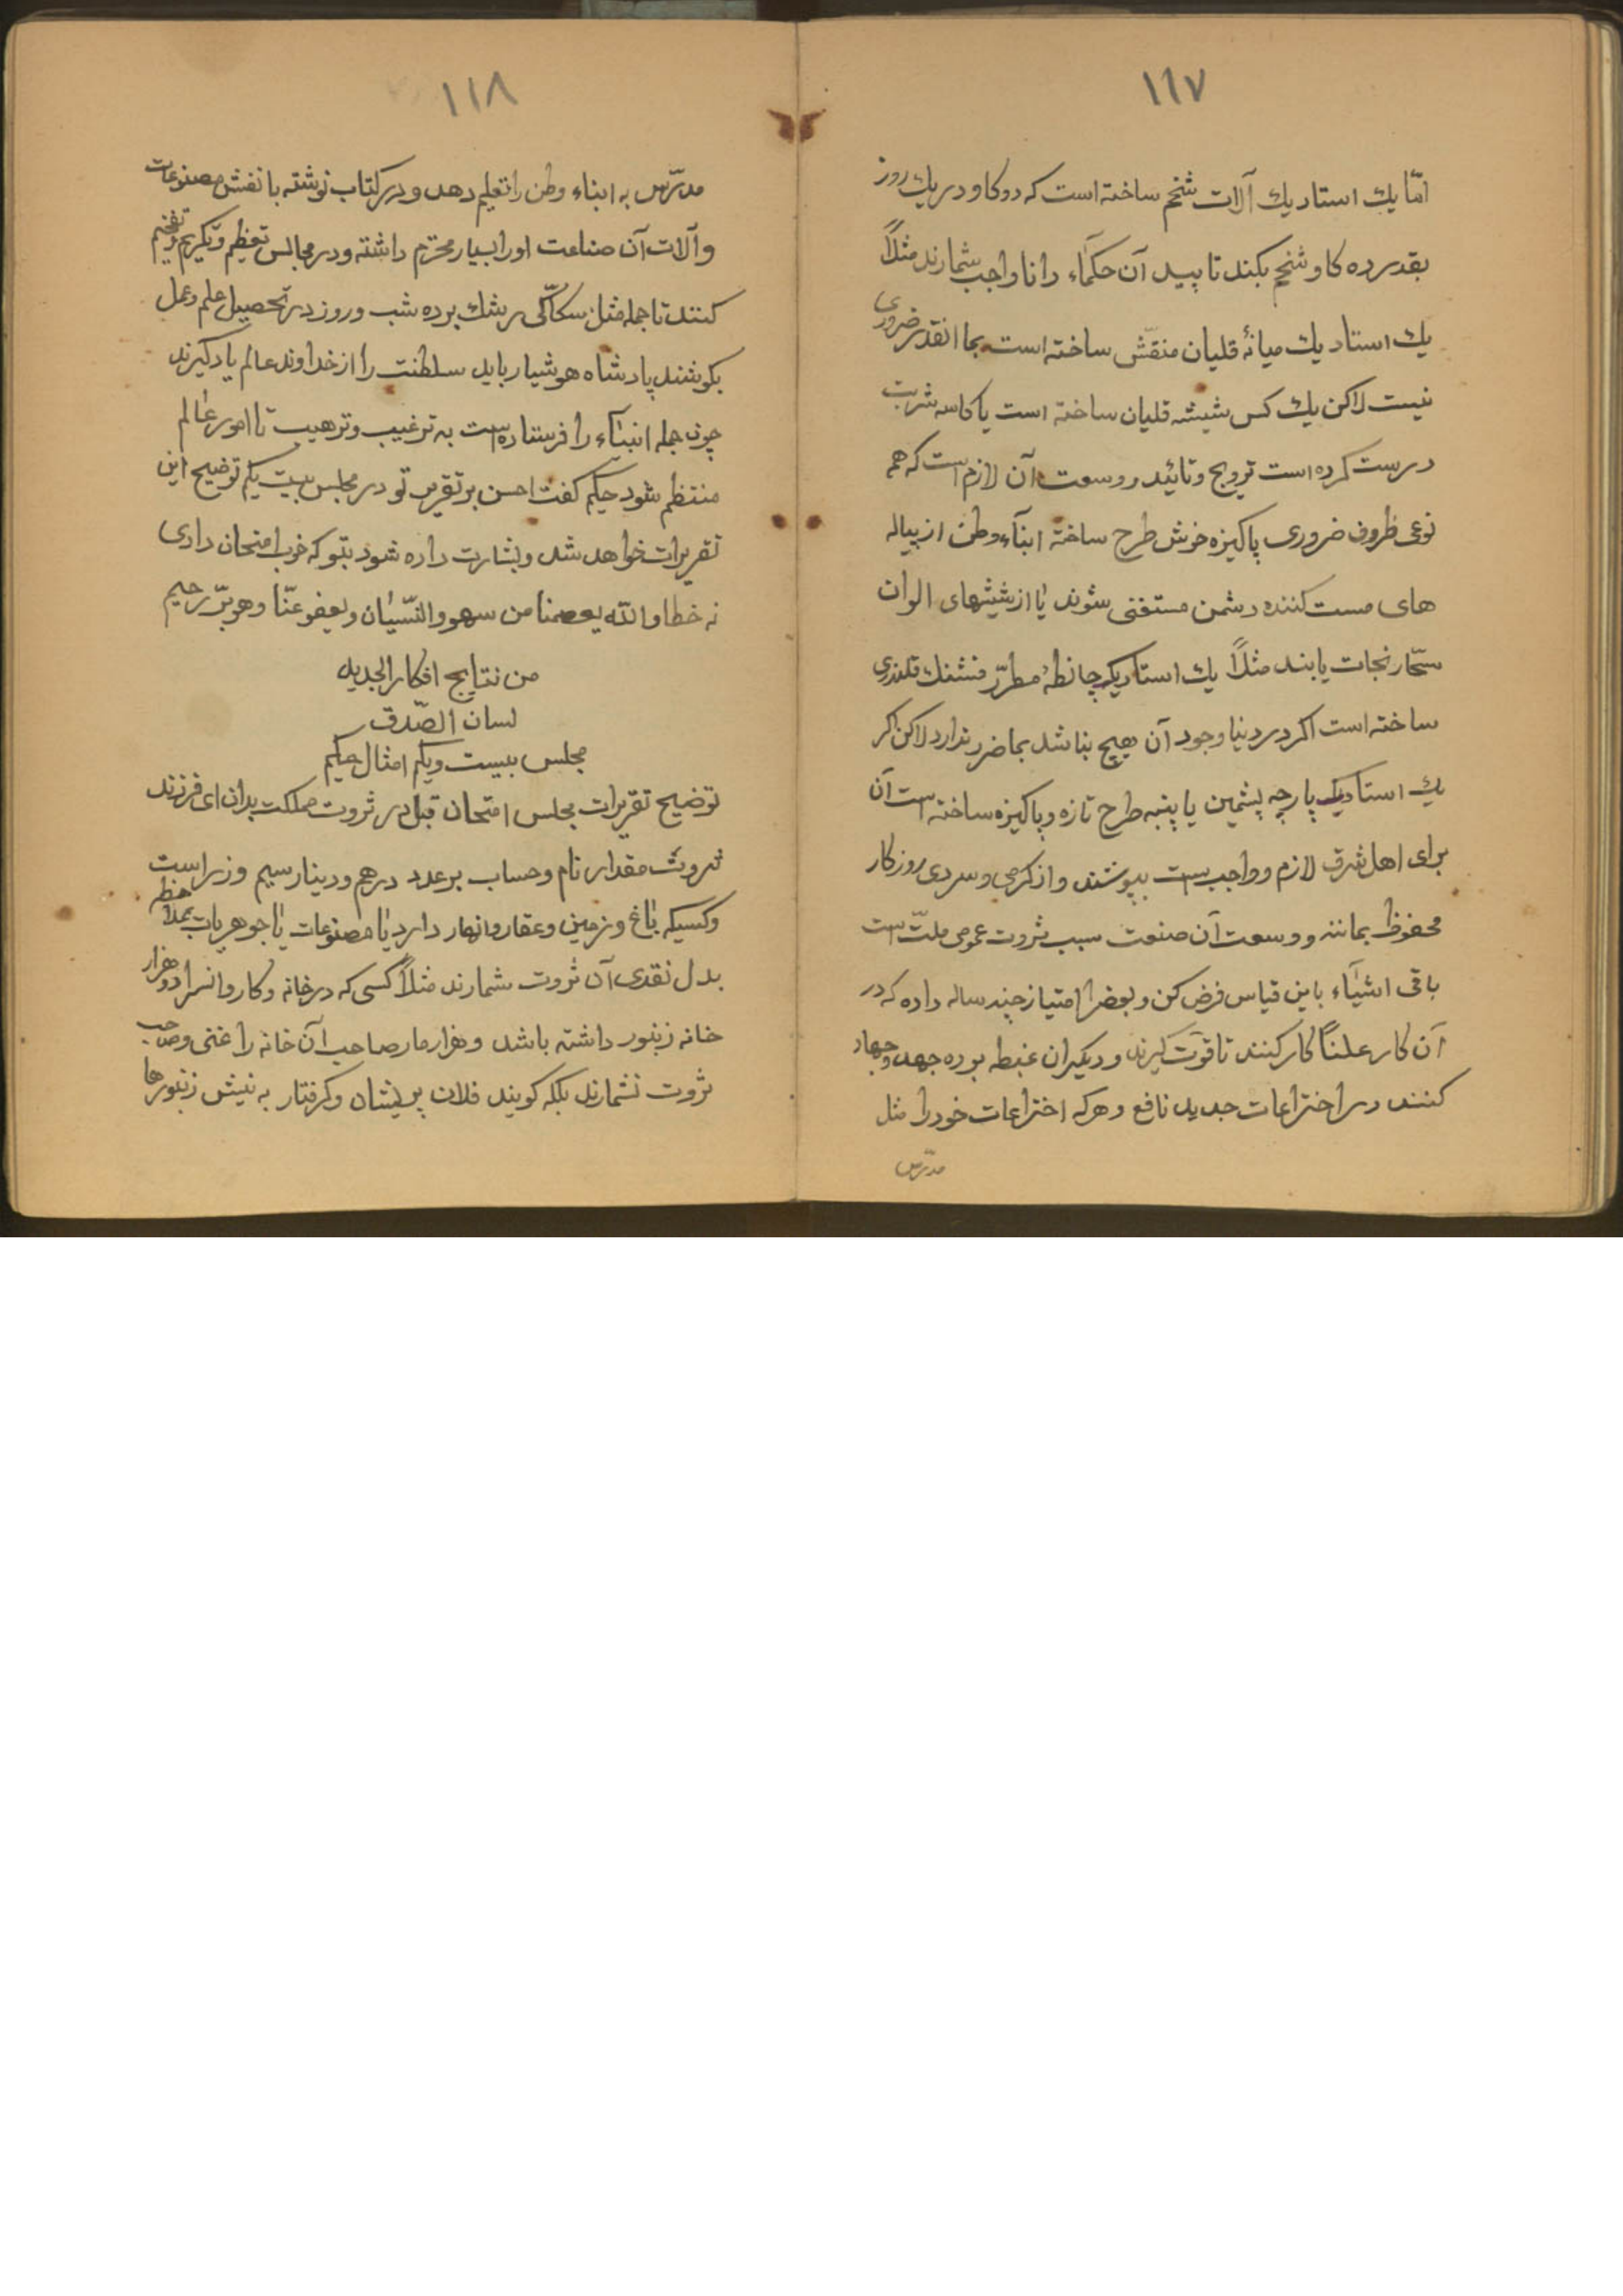 ۱۱۷
امّا یك استاد یك آلات شخم ساخته است که دو کاو در یك روز
بقدر ده کاو شخم بکند تأیید آن حکماء دانا واجب شمارند مثلاً
یك استاد یك میانهٔ قلیان منقّش ساخته است بما انقدر ضروری
نیست لاکن یك کس شیشه قلیان ساخته است یا کاسه شربت
درست کرده است ترویج و تائید و وسعت آن لازم است که هم
نوعی ظروف ضروری پاکیزه خوش طرح ساختهٔ ابنآء وطن از پیاله
های مست کننده دشمن مستغنی شوند یا از شیشهای الوان
سحّار نجات یابند مثلاً یك استاد یك چانطهٔ مطرّز فشنك قلندری
ساخته است اکر در دنیا وجود آن هیچ نباشد بما ضرر ندارد لاکن اکر
یك استاد یك پارچه پشمین یا پنبه طرح تازه و پاکیزه ساخته است آن
برای اهل شرق لازم و واجب است بپوشند و از کرمی و سردی روزکار
محفوظ بمانند و وسعت آن صنعت سبب ثروت عمومی ملّت است
باقی اشیآء باین قیاس فرض کن و بعضرا امتیاز چند ساله داده که در
آن کار علناً کار کنند تا قوّت کیرند و دیکران غبطه برده جهد و جهاد
کنند در اختراعات جدید نافع و هرکه اختراعات خود را مثل
مدرّس
۱۱۸
مدرّس به ابناء وطن را تعلیم دهد و در کتاب نوشته با نقش مصنوعات
و آلات آن صناعت او را بسیار محترم داشته و در مجالس تعظیم و تکریم و تفخیم
کنند تا جمله مثل سکاکّی رشك برده شب و روز در تحصیل علم و عمل
بکوشند پادشاه هوشیار باید سلطنت را از خداوند عالم یاد کیرند
چون جمله انبیآء را فرستاده است به ترغیب و ترهیب تا امور عالم
منتظم شود حکیم کفت احسن بر تقریر تو در مجلس بیست یکم توضیح این
تقریرات خواهد شد و بشارت داده شود بتو که خوب امتحان دادی
نه خطا والله یعصمنا من سهو والنّسیان و یعفو عنّا وهو برّ رحیم
من نتایج افکار الجدیده
لسان الصّدق
مجلس بیست و یکم امثال حکیم
توضیح تقریرات مجلس امتحان قبل در ثروت مملکت بدان ای فرزند
ثروت مقدار نام و حساب بر عدد درهم و دینار سیم و زر است
و کسیکه باغ و زمین و عقار و انهار دارد یا مصنوعات یا جوهریات بملاحظه
بدل نقدی آن ثروت شمارند مثلاً کسی که در خانه و کاروانسرا دو هزار
خانه زنبور داشته باشد و هزار مار صاحب آن خانه را غنی و صاحب
ثروت نشمارند بلکه کویند فلان پریشان و کرفتار به نیش زنبورها